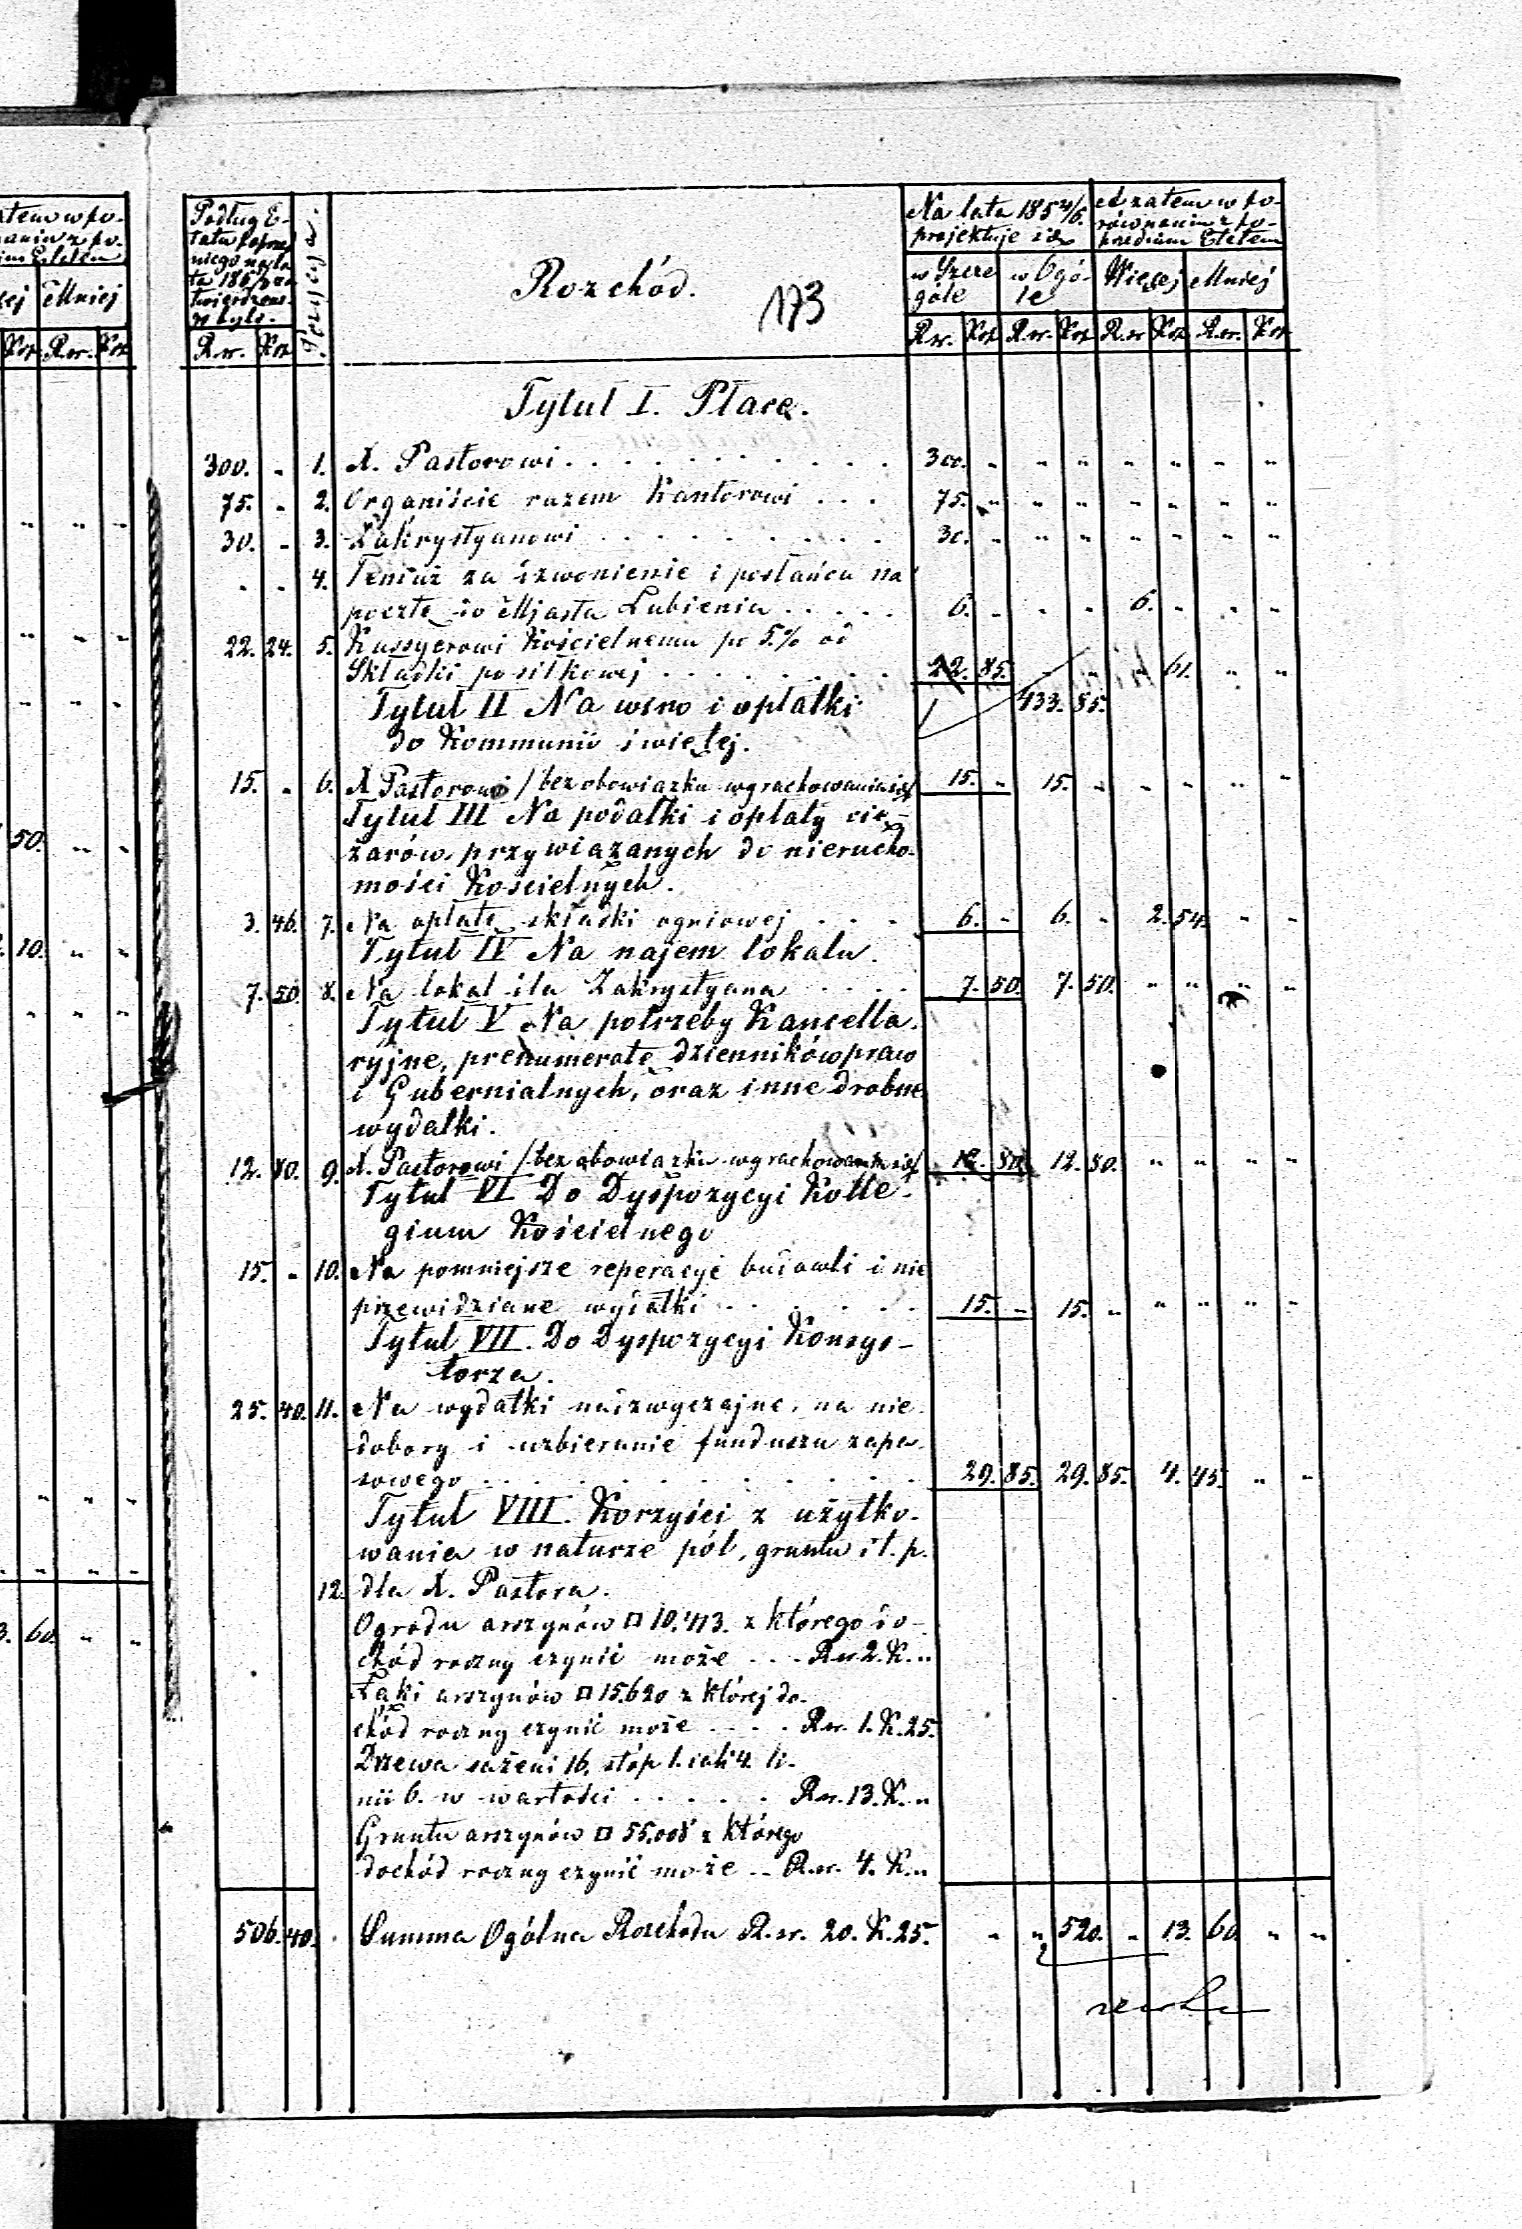 Rozchód.
173
Podług E-
tatu poprze
niego na la
twierdzone
było.
Pozycya.
Na lata 1854/6.
projektuje się
w Szcze
góle
w Ogó-
le
A zatem w po-
równaniu z po-
przednim Etatem
Więcej Mniej
Rsr. Kop Rsr. Kop Rsr. Kop Rsr. Kop Rsr. Kop
Tytuł I. Płace.
300. " 1. X. Pastorowi . . . 300. " " " " " " "
75. " 2. Organiście razem Kantorowi . . . 75. " " " " " " "
30. " 3. Zakrystyanowi . . . 30. " " " " " " "
" " 4. Temuż za dzwonienie i posłańca na
pocztę do Miasta Lubienia . . . 6. " " " 6. " " "
22. 24. 5. Kassyerowi Kościelnemu po 5.% od
Składki posiłkowej . . . 22. 85. " " " 61. " "
Tytuł II Na wino i opłatki 433. 85.
do Kommunii świętej.
15. " 6. X Pastorowi /bez obowiązku wyrachowania się/ 15. " 15. " " " " "
Tytuł III Na podatki i opłaty cię-
żarów przywiązanych do nierucho-
mości Kościelnych.
3. 46. 7. Na opłatę składki ogniowej . . . 6. " 6. " 2. 54. " "
Tytuł IV Na najem lokalu.
7. 50. 8. Na lokal dla Zakrystyana . . . 7. 50. 7. 50. " " " "
Tytuł V Na potrzeby Kancella-
ryjne, prenumeratę dzienników praw
i Gubernialnych, oraz inne drobne
wydatki.
12. 80. 9. X. Pastorowi /bez obowiązku wyrachowania się/ 12. 80. 12. 80. " " " "
Tytuł VI Do Dyspozycyi Kolle-
gium Kościelnego
15. " 10. Na pomniejsze reperacye budowli i nie
przewidziane wydatki . . . 15. " 15. " " " " "
Tytuł VII. Do Dyspozycyi Konsys-
torza.
25. 40. 11. Na wydatki nadzwyczajne, na nie
dobory i uzbieranie funduszu zapa-
sowego . . . 29. 85. 29. 85. 4. 45. " "
Tytuł VIII. Korzyści z użytko-
wania w naturze pól, gruntu i t. p.
12. dla X. Pastora.
Ogrodu arszynów □ 10.413. z którego do-
chód roczny czynić może . . . Rsr 2. K. "
Łąki arszynów □ 15.620 z której do-
chód roczny czynić może . . . Rsr. 1. K. 25.
Drzewa sażeni 16, stóp 1. cali 4. li-
nii 6. w wartości . . . Rsr. 13. K. "
Gruntu arszynów □ 55.008 z którego
dochód roczny czynić może . . Rsr. 4. K. "
506. 40. Summa Ogólna Rozchodu Rsr. 20. K. 25. " " 520. " 13. 60. " "